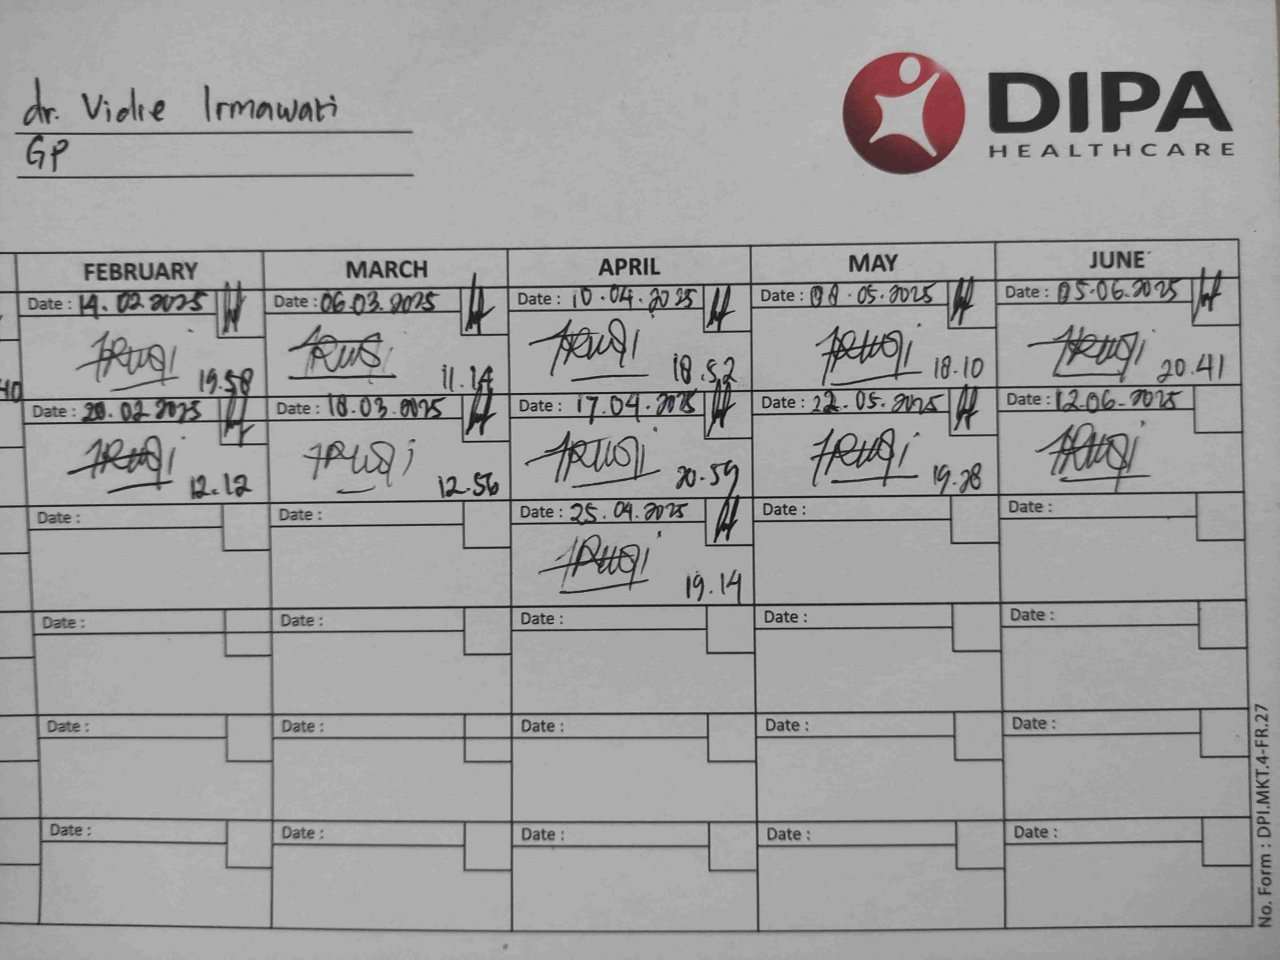 dr. Vidie Irmawati
GP
DIPA
HEALTHCARE
FEBRUARY MARCH APRIL MAY JUNE
Date : 14.02.2025 Date : 06.03.2025 Date : 10.04.2025 Date : 08.05.2025 Date : 05.06.2025
19.58 11.14 18.52 18.10 20.41
Date : 20.02.2025 Date : 18.03.2025 Date : 17.04.2025 Date : 22.05.2025 Date : 12.06.2025
12.12 12.56 20.59 19.28
Date : Date : Date : 25.04.2025 Date : Date :
19.14
Date : Date : Date : Date : Date :
Date : Date : Date : Date : Date :
Date : Date : Date : Date : Date :
No. Form : DPI.MKT.4-FR.27